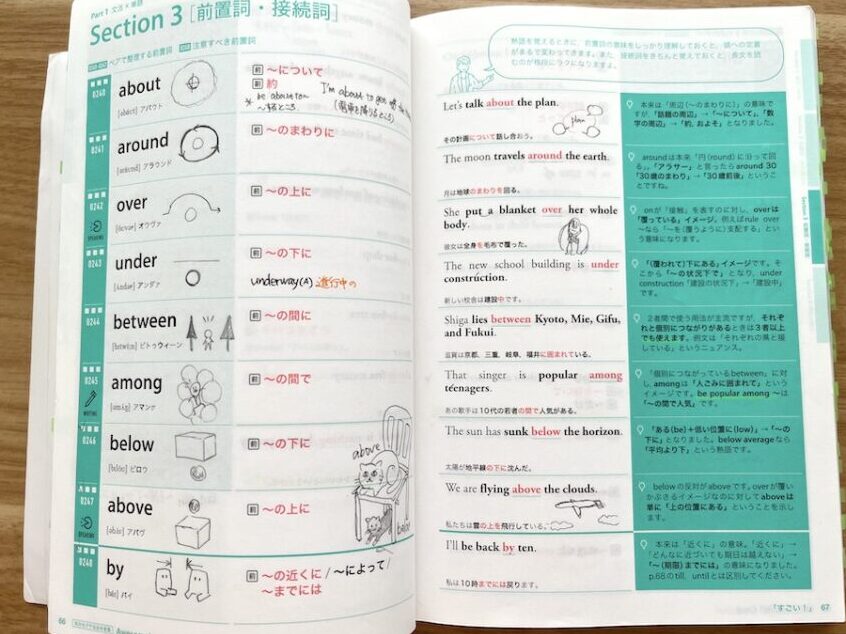 Part 1 文法×単語
Section 3 [前置詞・接続詞]
ペアで整理する前置詞
注意すべき前置詞
0240
about
[əbáut] アバウト
前 〜について
前 約
I'm about to get off the
* be about to
(電車を降りるところ)
〜するところ
0241
around
[əráund] アラウンド
前 〜のまわりに
0242
over
[óuvər] オウヴァ
前 〜の上に
SPEAKING
0243
under
[ʌ́ndər] アンダァ
前 〜の下に
underway(A) 進行中の
0244
between
[bitwíːn] ビトゥウィーン
前 〜の間に
0245
among
[əmʌ́ŋ] アマング
前 〜の間で
WRITING
0246
below
[bilóu] ビロウ
前 〜の下に
above
below
0247
above
[əbʌ́v] アバヴ
前 〜の上に
SPEAKING
0248
by
[bái] バイ
前 〜の近くに / 〜によって /
〜までには
66
熟語を覚えるときに、前置詞の意味をしっかり理解しておくと、頭への定着
がまるで変わってきます。また、接続詞をきちんと覚えておくと、長文を読
むのが格段にラクになります。
Let's talk about the plan.
plan
その計画について話し合おう。
本来は「周辺(〜のまわりに)」の意味で
すが「話題の周辺」→「〜について」、「数
字の周辺」→「約、およそ」となりました。
The moon travels around the earth.
月は地球のまわりを回る。
aroundは本来「円(round)に沿って回
る」。「アラサー」と言ったらaround 30
「30歳のまわり」→「30歳前後」というこ
とですね。
She put a blanket over her whole
body.
彼女は全身を毛布で覆った。
onが「接触」を表すのに対し、overは
「覆っている」イメージ。例えばrule over
〜なら「〜を(覆うように)支配する」とい
う意味になります。
The new school building is under
construction.
新しい校舎は建設中です。
「(覆われて)下にある」イメージです。そ
こから「〜の状況下で」となり、under
construction「建設の状況下」→「建設中」
です。
Shiga lies between Kyoto, Mie, Gifu,
and Fukui.
滋賀は京都、三重、岐阜、福井に囲まれている。
2者間で使う用法が主流ですが、それぞ
れと個別につながりがあるときは3者以上
でも使えます。例文は「それぞれの県と接
している」というニュアンス。
That singer is popular among
teenagers.
あの歌手は10代の若者の間で人気がある。
「個別につながっているbetween」に対
し、amongは「人ごみに囲まれて」という
イメージです。be popular among 〜は
「〜の間で人気」です。
The sun has sunk below the horizon.
太陽が地平線の下に沈んだ。
「ある(be)+低い位置に(low)」→「〜の
下に」となりました。below averageなら
「平均より下」という熟語です。
We are flying above the clouds.
私たちは雲の上を飛行している。
belowの反対がaboveです。overが覆い
かぶさるイメージなのに対してaboveは
単に「上の位置にある」ということを示し
ます。
I'll be back by ten.
私は10時までには戻ります。
本来は「近くに」の意味。「近くに」→
「どんなに近づいても期日は越えない」→
「〜(期限)までには」の意味になりました。
p.68のtill、untilとは区別してください。
「すごい！」 67